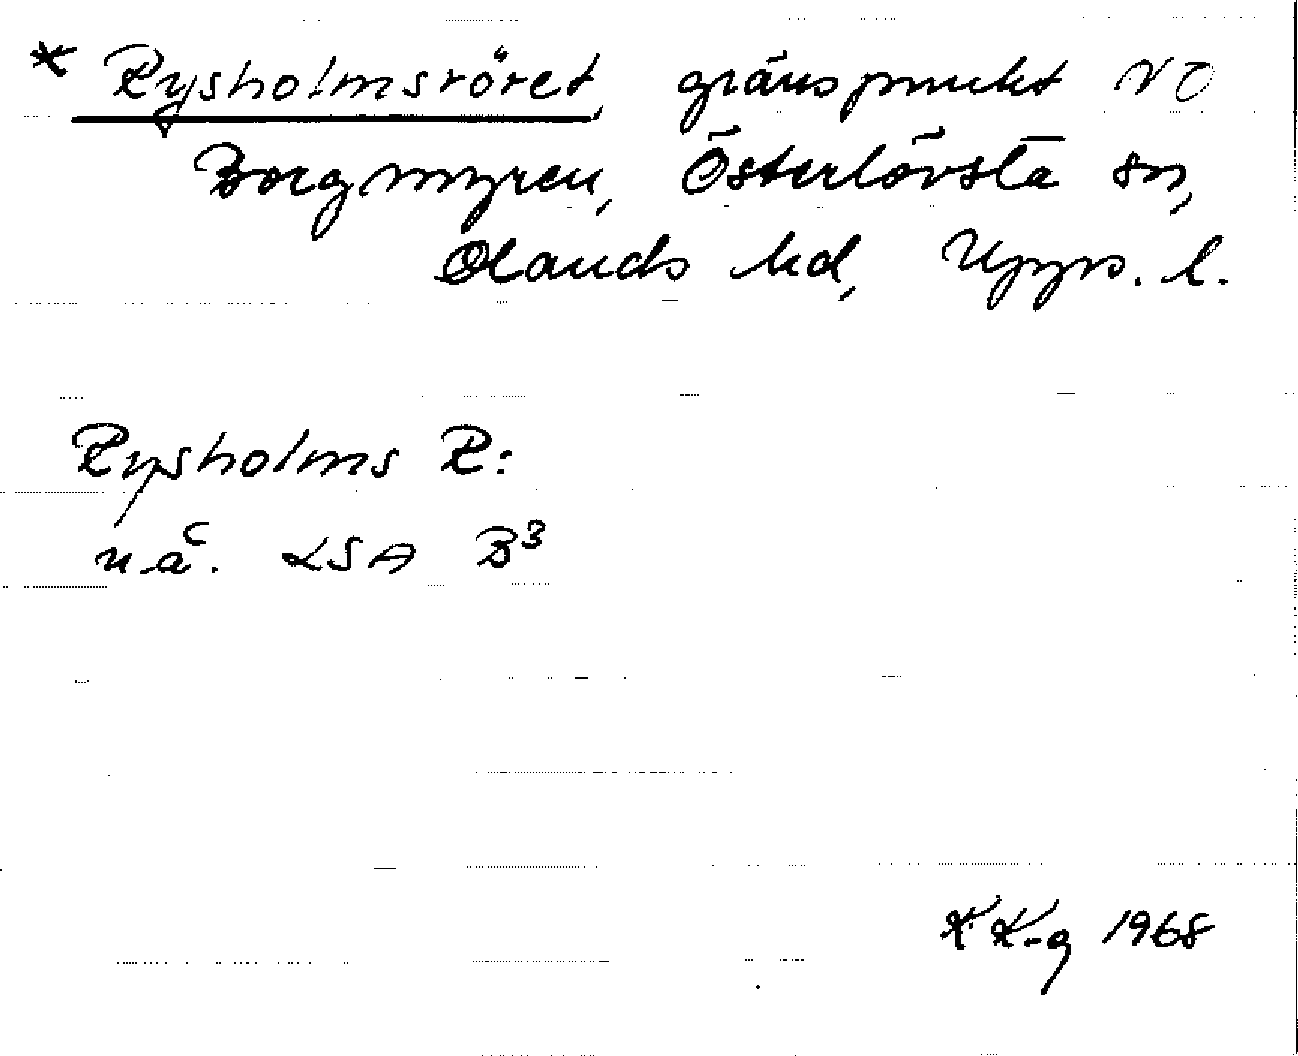 * Rysholmsröret, gränspunkt NO
Borgmyren, Österlövsta sn,
Olands hd, Upps. l.
Rysholms R:
n.ä. LSA B³
K K-g 1968